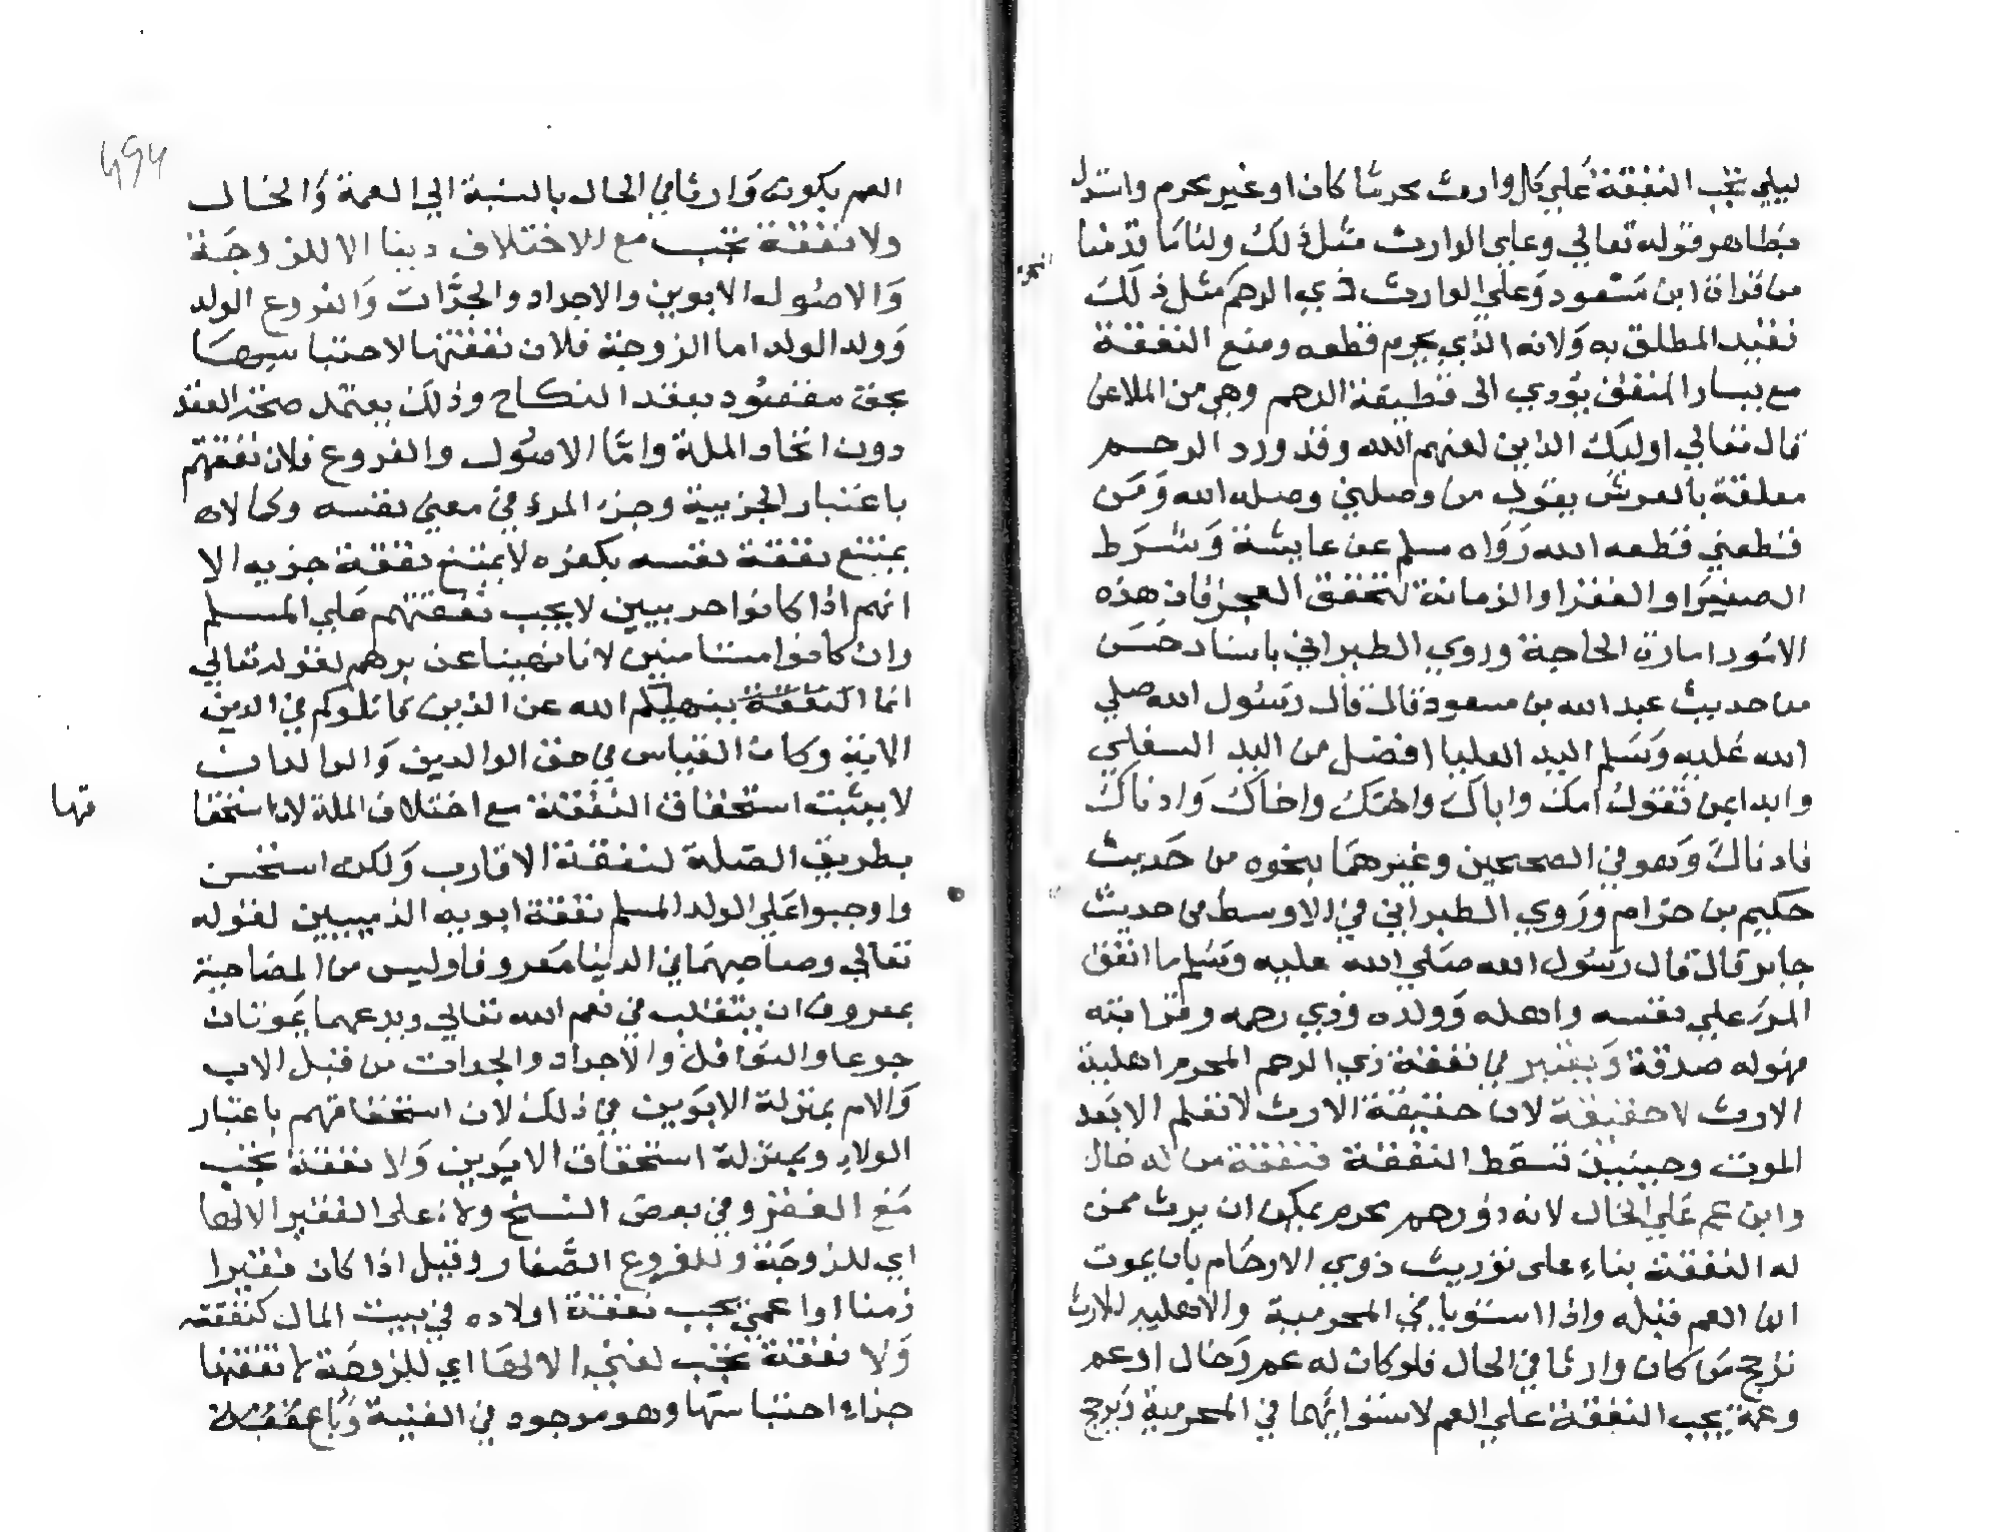 ليلي تجب النفقة علي كل وارث محرما كان او غير محرم واستدل
بظاهر قوله تعالي وعلي الوارث مثل ذلك ولنا ما قدمنا
من قراة ابن مسعود وعلي الوارث ذي الرحم مثل ذلك
فقيد المطلق به ولانه الذي يحرم قطعه ومنع النفقة
مع يسار المنفق يؤدي الى قطيعة الرحم وهي من الملاعن
قال تعالي اوليك الذين لعنهم الله وقد ورد الرحم
معلقة بالعرش يقول من وصلني وصله الله ومن
قطعني قطعه الله رواه مسلم عن عايشة وشرط
الصغير او الفقر او الزمانة لتحقق العجز فان هذه
الامور امارة الحاجة وروي الطبراني باسناد حسن
من حديث عبد الله بن مسعود قال قال رسول الله صلي
الله عليه وسلم اليد العليا افضل من اليد السفلي
وابدا بمن تعول امك واباك واختك واخاك وادناك
فادناك وهو في الصحيحين وغيرهما بنحوه من حديث
حكيم بن حزام وروي الطبراني في الاوسط من حديث
جابر قال قال رسول الله صلي الله عليه وسلم ما انفق
المرء علي نفسه واهله وولده وذي رحمه وقرابته
فهو له صدقة ويعتبر في نفقة ذي الرحم المحرم اهلية
الارث لا حقيقة لان حقيقة الارث لا تعلم الا بعد
الموت وحينيذ تسقط النفقة فنفقة من له خال
وابن عم علي الخال لانه ذو رحم محرم يمكن ان يرث ممن
له النفقة بناء على توريث ذوي الارحام بان يموت
ابن العم قبله واذا استويا في المحرمية والاهلية للارث
ترجح من كان وارثا في الحال فلو كان له عم وخال او عم
وعمة تجب النفقة علي العم لاستوايهما في المحرمية وترجح
العم بكونه وارثا في الحال بالنسبة الي العمة والخال
ولا نفقة تجب مع الاختلاف دينا الا للزوجة
والاصول الابوين والاجداد والجدات والفروع الولد
وولد الولد اما الزوجة فلان نفقتها لاحتباسها
بحق مقصود بعقد النكاح وذلك يعتمد صحة العقد
دون اتحاد الملة واما الاصول والفروع فلان نفقتهم
باعتبار الجزيية وجزء المرء في معني نفسه وكما لا
يمتنع نفقة نفسه بكفره لا يمتنع نفقة جزيه الا
انهم اذا كانوا حربيين لا يجب نفقتهم علي المسلم
وان كانوا مستامنين لانا نهينا عن برهم لقوله تعالي
انما النفقة ينهيكم الله عن الذين قاتلوكم في الدين
الاية وكان القياس في حق الوالدين والوالدات
لا يثبت استحقاق النفقة مع اختلاف الملة لان استحقا
قها
بطريق الصلة لنفقة الاقارب ولكن استحسن
واوجبوا علي الولد المسلم نفقة ابويه الذميين لقوله
تعالي وصاحبهما في الدنيا معروفا وليس من المصاحبة
بمعروف ان يتقلب في نعم الله تعالي ويدعهما يموتان
جوعا والنوافل والاجداد والجدات من قبل الاب
والام بمنزلة الابوين في ذلك لان استحقاقهم باعتبار
الولاد وبمنزلة استحقاق الابوين ولا نفقة تجب
مع الفقر وفي بعض النسخ ولا على الفقير الا لها
اي للزوجة وللفروع الصغار وقيل اذا كان فقيرا
زمنا او اعمي تجب نفقة اولاده في بيت المال كنفقته
ولا نفقة تجب لغني الا لها اي للزوجة لا نفقتها
جزاء احتباسها وهو موجود في الغيبة وباع